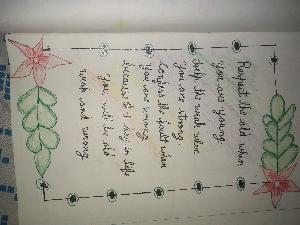 Respect the old when
you are young.
help the weak when
you are strong
Confess the fault when
You are wrong.
because day in life
You will be old
weak and wrong